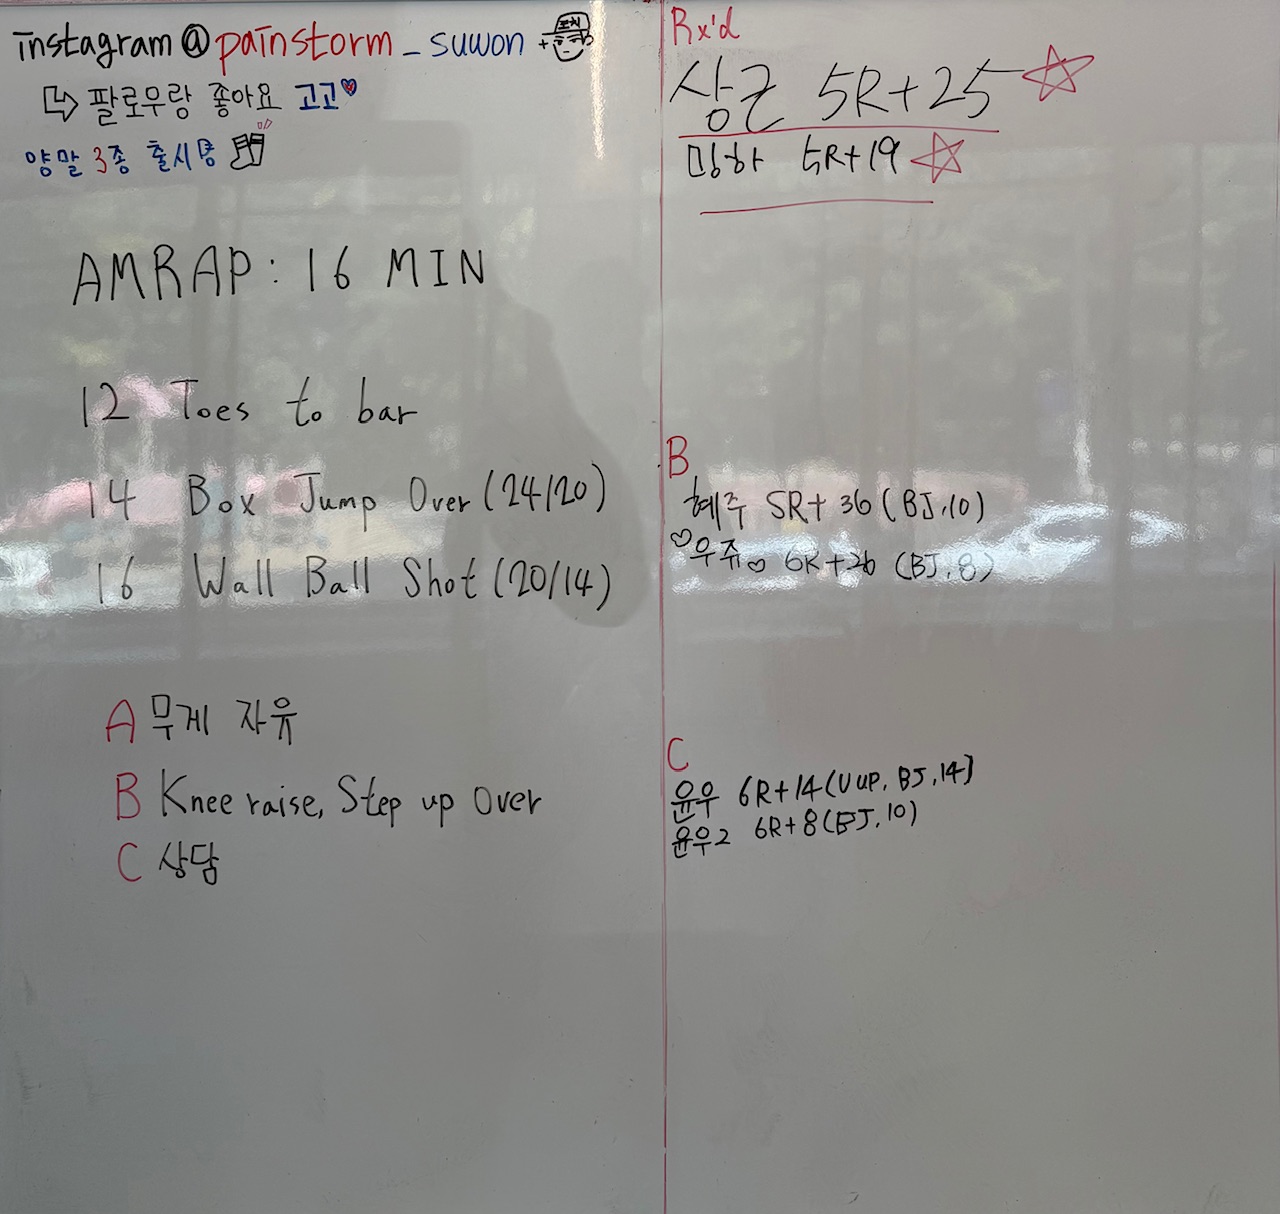 instagram @painstorm_suwon
팔로우랑 좋아요 고고
양말 3종 출시룡
AMRAP : 16 MIN
12 Toes to bar
14 Box Jump Over (24/20)
16 Wall Ball Shot (20/14)
A 무게 자유
B Knee raise, Step up over
C 상담
Rx'd
상근 5R+25
밍하 5R+19
B
혜주 5R+36 (BJ.10)
우쥬 6R+26 (BJ.8)
C
윤우 6R+14 (V up, BJ, 14)
윤우2 6R+8 (BJ, 10)